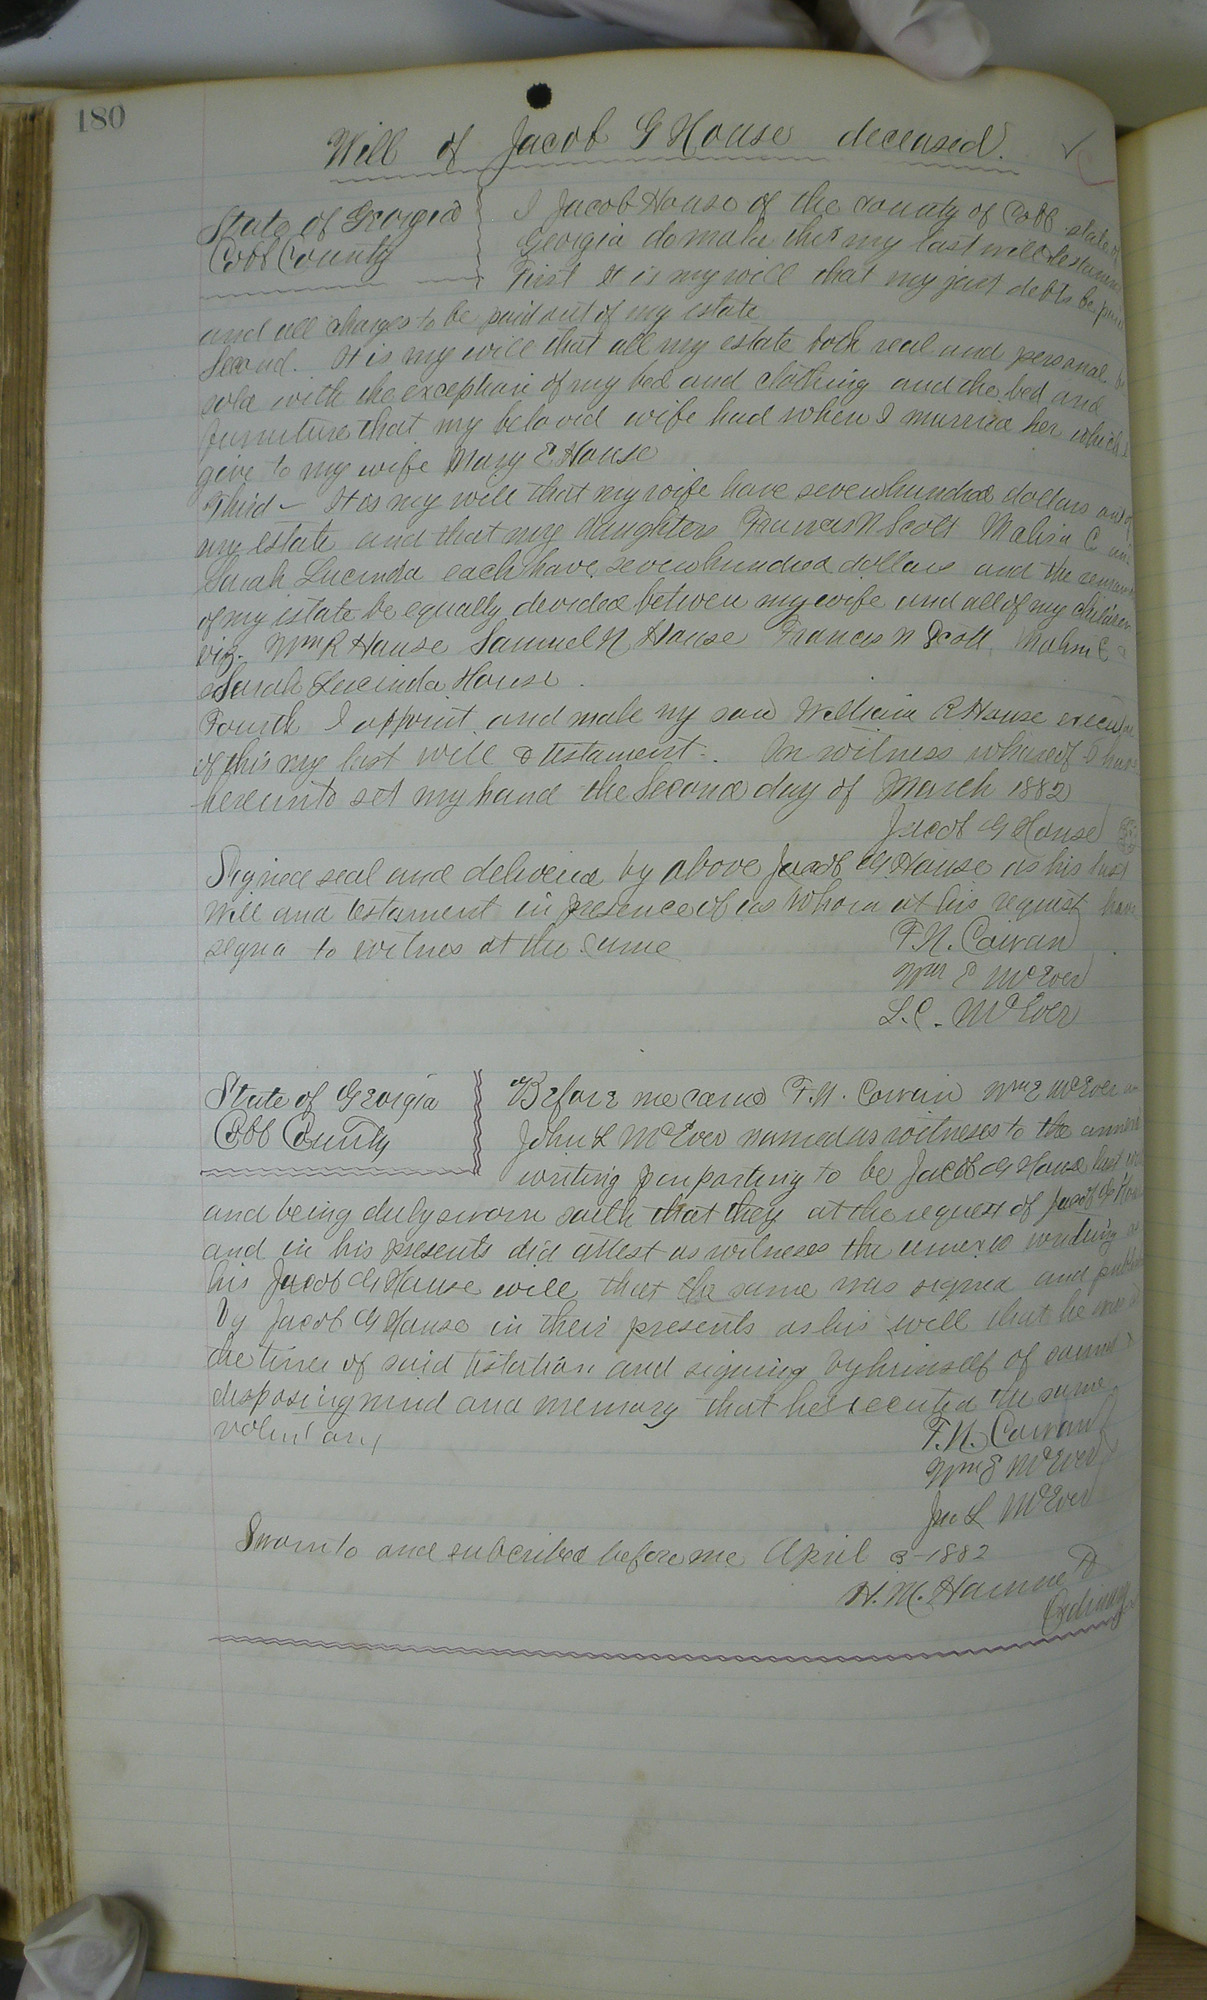 180
Will of Jacob G House deceased.
State of Georgia
Cobb County
I Jacob House of the County of Cobb state of
Georgia do make this my last will & testament
First It is my will that my just debts be paid
and all charges to be paid out of my estate
Second. It is my will that all my estate both real and personal be
sold with the exception of my bed and clothing and the bed and
furniture that my beloved wife had when I married her which I
give to my wife Mary E House
Third - It is my will that my wife have seven hundred dollars out of
my estate and that my daughters Frances N Scott Malisa C and
Sarah Lucinda each have seven hundred dollars and the remain
of my estate be equally devided between my wife and all of my children
viz. Wm R House Samuel N House Frances N Scott, C
Sarah Lucinda House.
Fourth I appoint and make my son William R House
of this my last will & testament. In witness whereof I have
hereunto set my hand the Second day of March 1882
Jacob G House
Signed seal and delivered by above Jacob G House as his last
Will and testament in presence of us whom at his request have
to witness at the same
F. N. Cowan
Wm E McEver
L. C. McEver
State of Georgia
Cobb County
Before me came F. N. Cowan Wm E McEver
John L McEver named as witnesses to the
writing purporting to be Jacob G House last
and being duly sworn saith that they at the request of Jacob G House
and in his presents did attest as witnesses the writing as
his Jacob G House will that the same was signed and
by Jacob G House in their presents as his will that he was
the time of said and signing by himself of sound &
disposing mind and memory that he executed the same
voluntary
F. N. Cowan
Wm E McEver
Jno L McEver
Sworn to and subcribed before me April 3-1882
H. M. Hammett
Ordinary